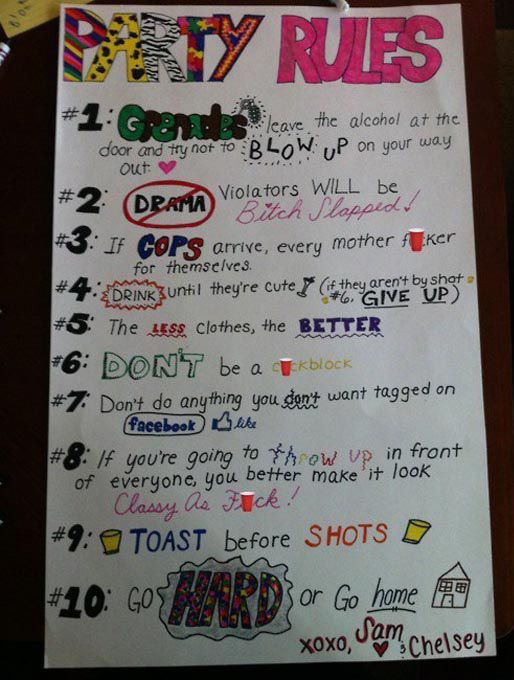 PARTY RULES
#1: Grenades leave the alcohol at the
door and try not to BLOW UP on your way
out.
#2: DRAMA Violators WILL be
Bitch Slapped!
#3: If COPS arrive, every mother f cker
for themselves.
#4: DRINK until they're cute (if they aren't by shot
#6, GIVE UP)
#5: The LESS clothes, the BETTER
#6: DON'T be a c ckblock
#7: Don't do anything you don't want tagged on
facebook like
#8: If you're going to throw up in front
of everyone, you better make it look
Classy As F ck!
#9: TOAST before SHOTS
#10: GO HARD or Go home
xoxo, Sam & Chelsey